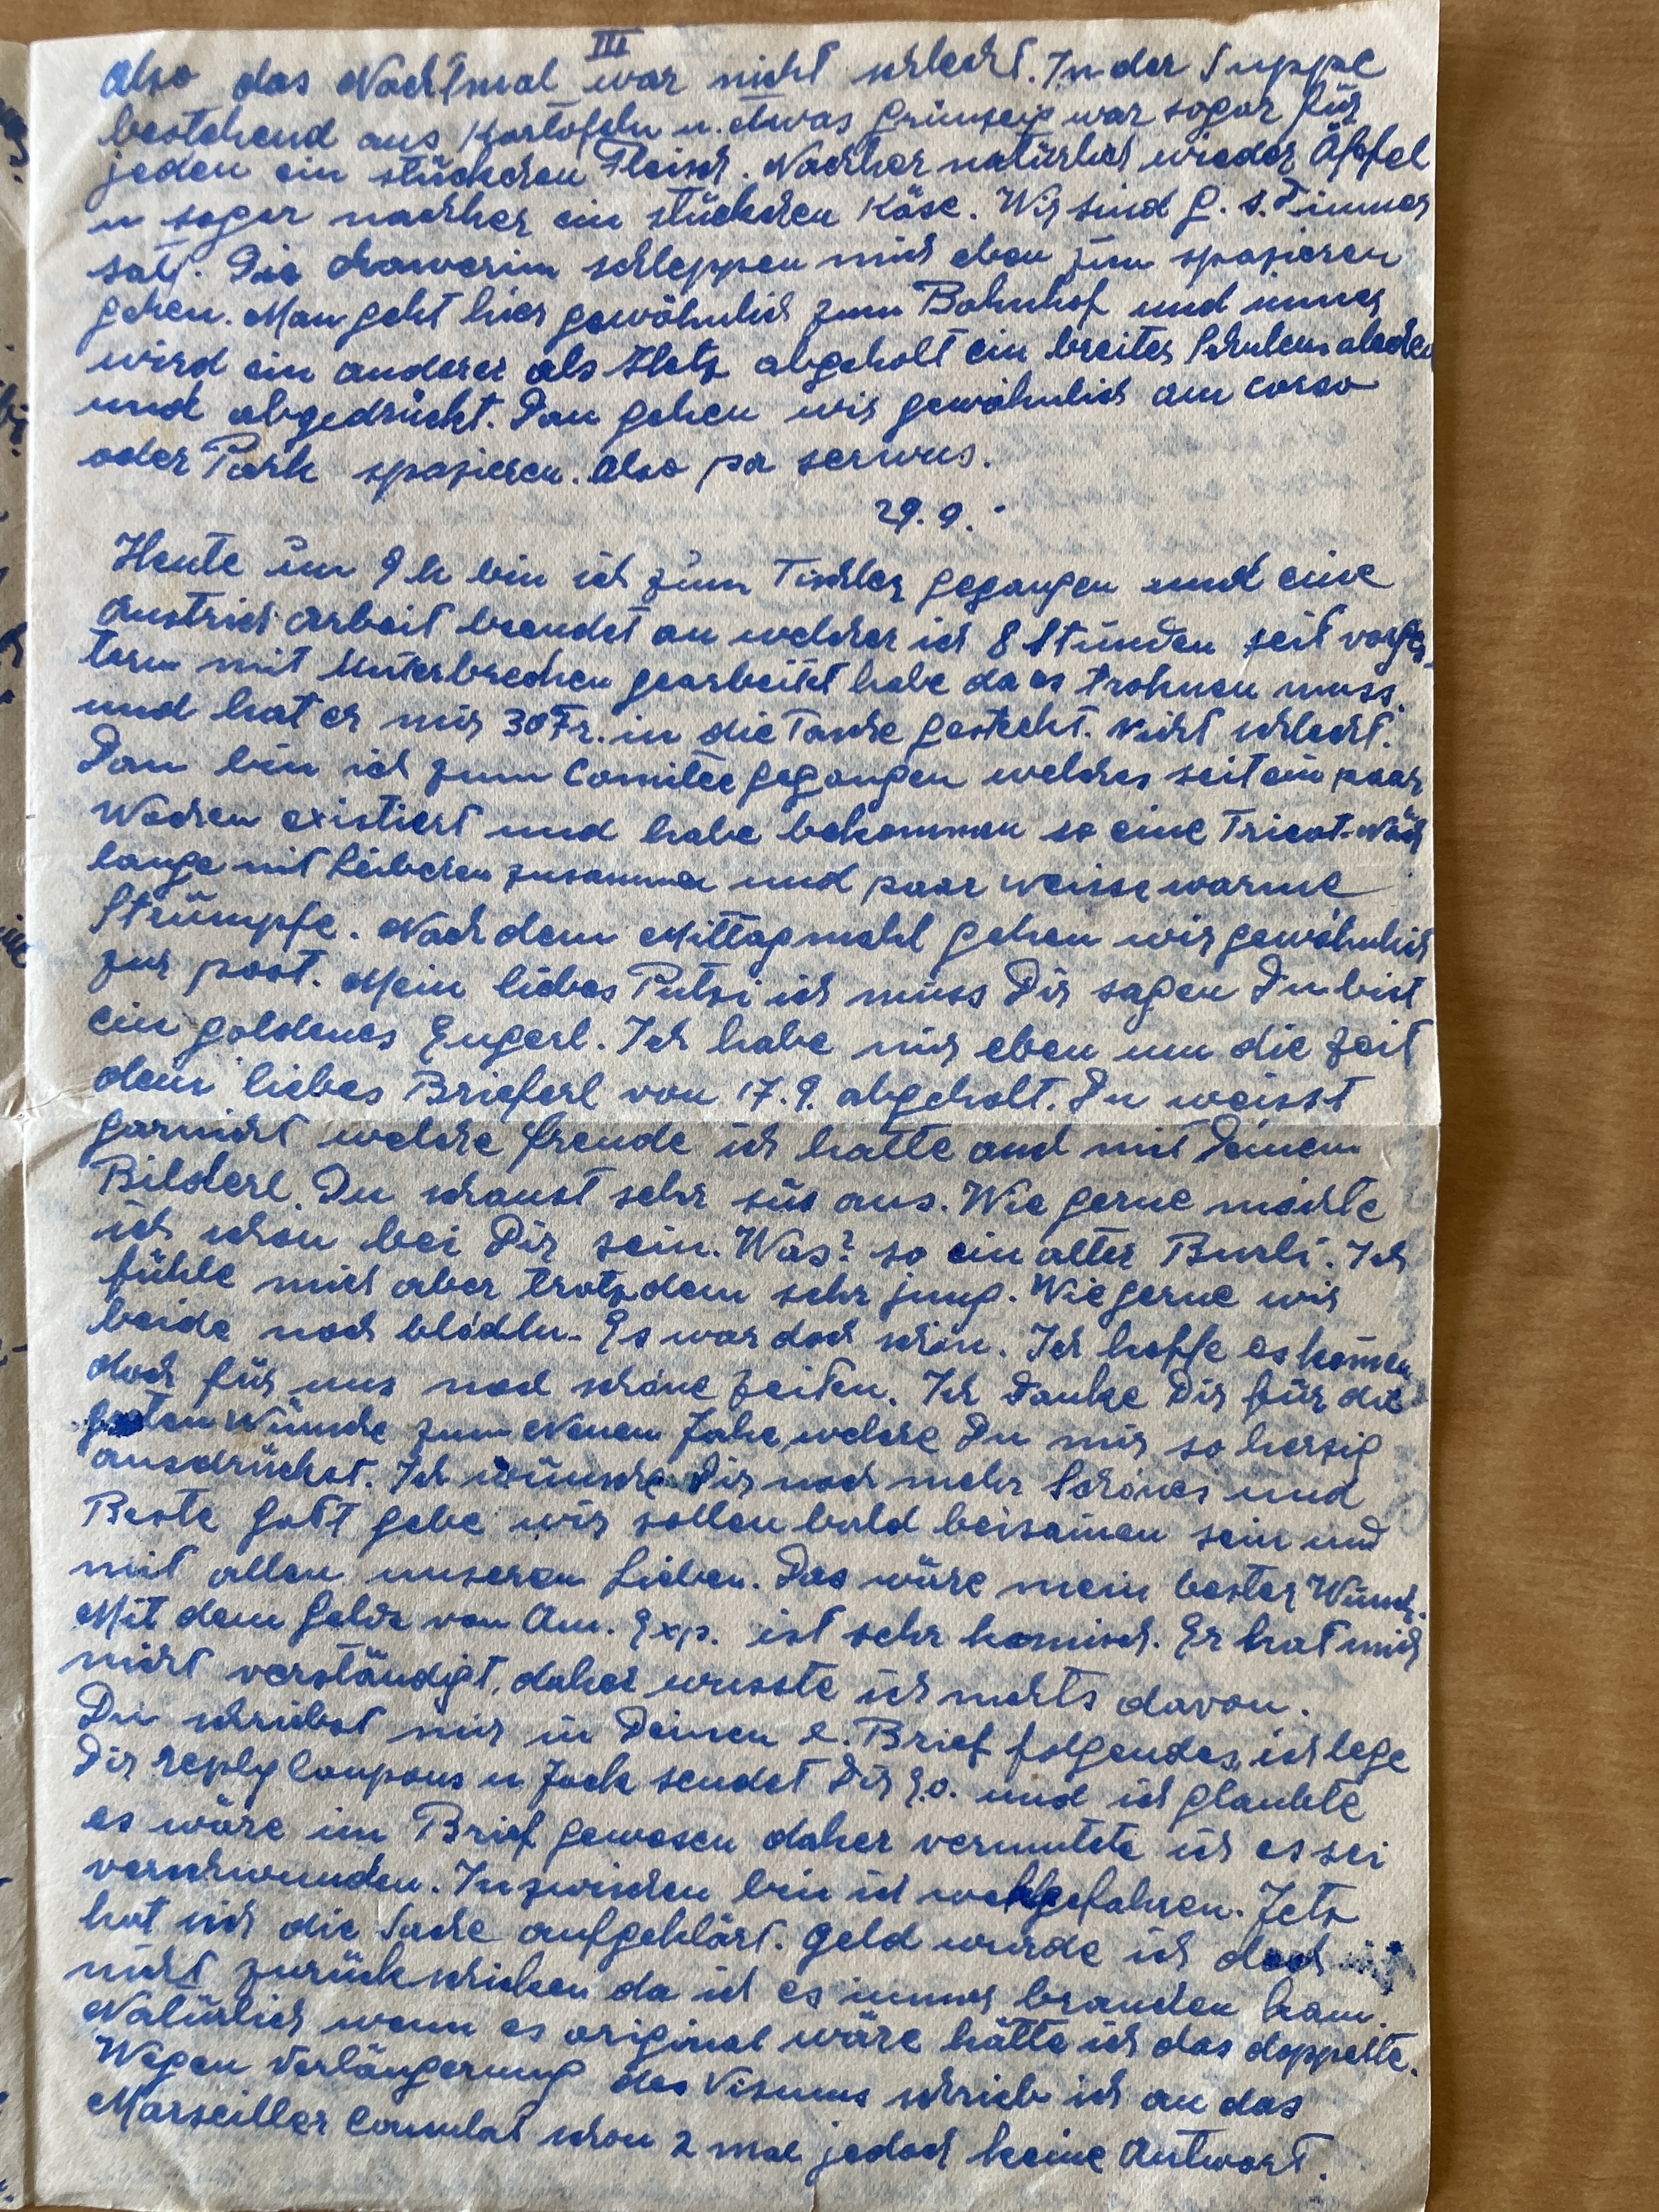 III
Also das Nachtmal war nicht schlecht. In der Suppe
bestehend aus Kartofeln u. etwas Grünzeig war sogar für
jeden ein stückchen Fleisch. Nachher natürlich wieder Äpfel
u sogar nachher ein stückchen Käse. Wir sind G. s. Dimmer
satt. Die chawerim schleppen mich eben zum spazieren
gehen. Man geht hier gewöhnlich zum Bahnhof und immer
wird ein anderer als Hetz abgeholt ein breites
und abgedrückt. Dan gehen wir gewöhnlich am corso
oder Park spazieren. Also pa serwus.
29.9.
Heute um 9 h bin ich zum Tischler gegangen und eine
Anstrich arbeit beendet an welcher ich 8 Stunden seit vorges-
tern mit Unterbrechen gearbeitet habe da es trohnen muss.
und hat er mir 30 Fr. in die Tasche gesteckt. Nicht schlecht.
Dan bin ich zum Comitee gegangen welches seit ein paar
Wochen existiert und habe bekommen so eine Tricot-
lange mit Leiberen zusammen und paar weisse warme
Strümpfe. Nach dem Mittagmahl gehen wir gewöhnlich
zur post. Mein liebes Putzi ich muss Dir sagen Du bist
ein goldenes Engerl. Ich habe mir eben um die Zeit
dein liebes Brieferl von 17.9. abgeholt. Du weisst
garnicht welche freude ich hatte and mit Deinem
Bilderl. Du schaust sehr süs aus. Wie gerne möchte
ich schon bei Dir sein. Was? so ein alter Burli. Ich
fühle mich aber trotzdem sehr jung. Wie gerne wir
beide noch blödln. Es war doch schön. Ich hoffe es komen
doch für uns noch schöne Zeiten. Ich Danke Dir für die
guten Wünsche zum Neuen Jahe, welche Du mir so herzig
ausdrückst. Ich wünsche Dir noch mehr Schönes und
Beste Gott gebe wir sollen bald beisamen sein und
mit allen unseren Lieben. Das wäre mein bester Wunsch.
Mit dem Gelde von Am. Exp. ist sehr komisch. Er hat mich
nicht verständigt, daher wusste ich nichts davon.
Du schribst mir in Deinen l. Brief folgendes, ich lege
Dir reply Coupons u Jack sendet Dir und ich glaubte
es wäre im Brief gewesen daher vermutete ich es sei
verschwunden. Inzwischen bin ich weggefahren. Jetz
hat sich die Sache aufgeklärt. Geld wurde ich doch
nicht zurückschicken da ich es immer brauchen kann.
Natürlich wenn es original wäre hätte ich das doppelte.
Wegen Verlängerung des Visums schrieb ich an das
Marseiller Consulat schon 2 mal jedoch keine Antwort.